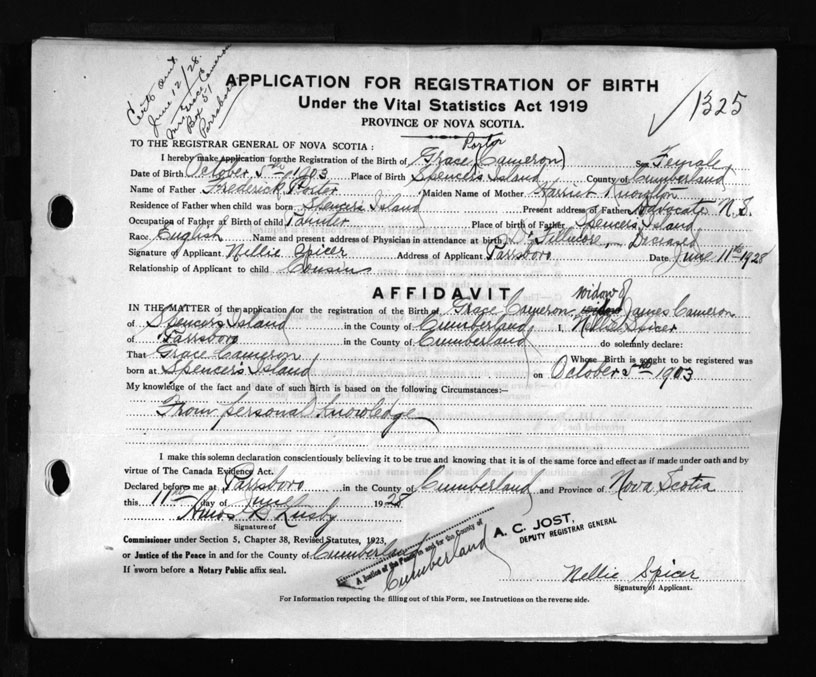 Cert. sent.
June 12/28.
Mrs Grace Cameron
Box 51
Parrsboro
APPLICATION FOR REGISTRATION OF BIRTH
✓ 1325
Under the Vital Statistics Act 1919
PROVINCE OF NOVA SCOTIA.
TO THE REGISTRAR GENERAL OF NOVA SCOTIA:
Porter
I hereby make application for the Registration of the Birth of Grace (Cameron) Sex Female
Date October 5th 1903 Place of Birth Spencers Island County of Cumberland
Name of Father Frederick Porter Maiden Name of Mother Harriet Knowlton
Residence of Father when child was born Spencers Island Present address of Father Advocate N. S.
Occupation of Father at Birth of child Place of birth of Father Spencers Island
Race English Name and present address of Physician in attendance at birth Dr Fillmore, Deceased
Signature of Applicant Nellie Spicer Address of Applicant Parrsboro Date June 11th 1928
Relationship of Applicant to child Cousin
AFFIDAVIT
widow of
IN THE MATTER of the application for registration of the Birth of Grace Cameron, widow James Cameron
of Spencers Island in the County of Cumberland I, Nellie Spicer
of Parrsboro in the County of Cumberland do solemnly declare:
That Grace Cameron Whose Birth is sought to be registered was
born at Spencer's Island on October 5th 1903
My knowledge of the fact and date of such Birth is based on the following Circumstances:—
From personal knowledge
I make this solemn declaration conscientiously believing it to be true and knowing that it is of the same force and effect as if made under oath and by
virtue of The Canada Evidence Act.
Declared before me at Parrsboro in the County of Cumberland and Province of Nova Scotia
this 11th day of June 1928
Amos B Lusby
Signature of
Commissioner under Section 5, Chapter 38, Revised Statutes, 1923,
or Justice of the Peace in and for the County of Cumberland
If sworn before a Notary Public affix seal.
A Justice of the Peace in and for the County of
Cumberland
A. C. JOST,
DEPUTY REGISTRAR GENERAL
Nellie Spicer
Signature of Applicant.
For Information respecting the filling out of this Form, see Instructions on the reverse side.